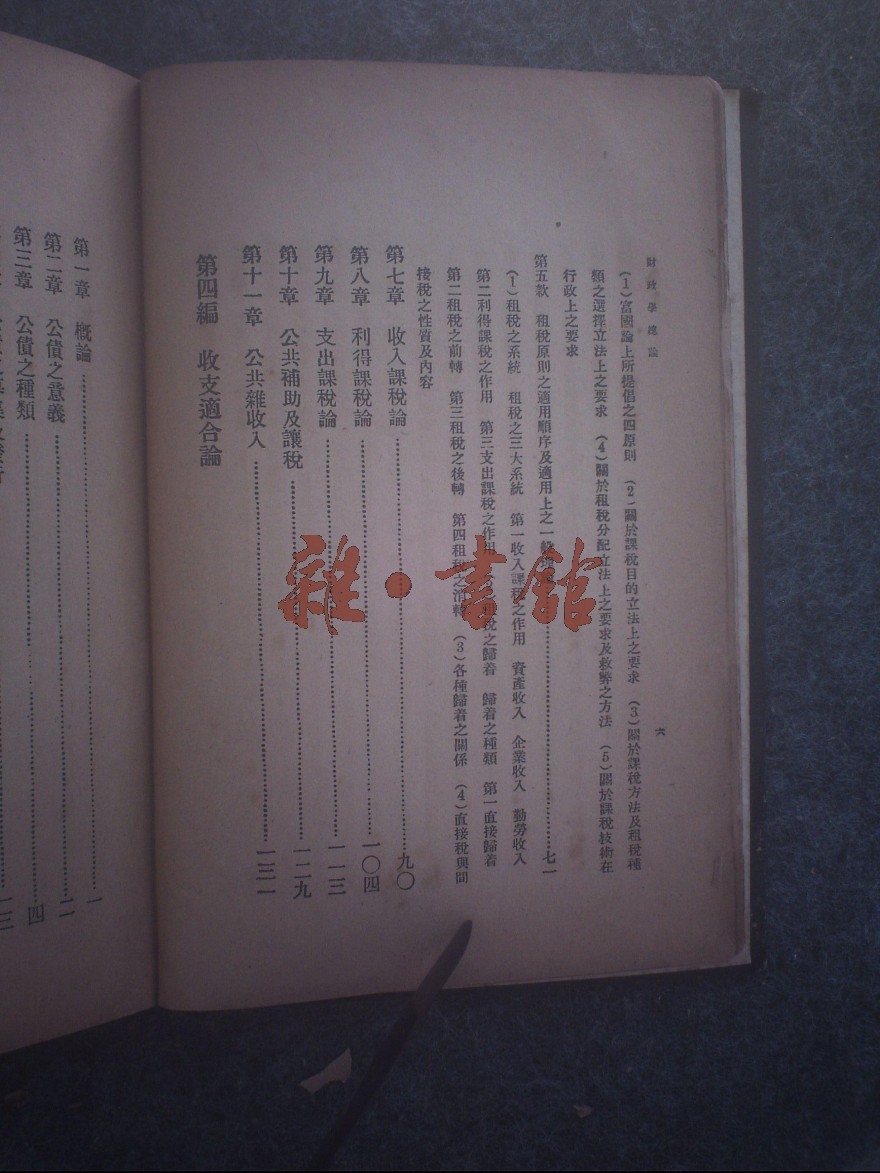 財政學總論
六
(1)富國論上所提倡之四原則 (2)關於課稅目的立法上之要求 (3)關於課稅方法及租稅種
類之選擇立法上之要求 (4)關於租稅分配立法上之要求及救弊之方法 (5)關於課稅技術在
行政上之要求
第五款 租稅原則之適用順序及適用上之一般……七一
(1)租稅之系統 租稅之三大系統 第一收入課稅之作用 資產收入 企業收入 勤勞收入
第二利得課稅之作用 第三支出課稅之作用 租稅之歸着 歸着之種類 第一直接歸着
第二租稅之前轉 第三租稅之後轉 第四租稅之消轉 (3)各種歸着之關係 (4)直接稅與間
接稅之性質及內容
第七章 收入課稅論……九〇
第八章 利得課稅論……一〇四
第九章 支出課稅論……一一三
第十章 公共補助及讓稅……一二九
第十一章 公共雜收入……一三一
第四編 收支適合論
第一章 概論……一
第二章 公債之意義……二
第三章 公債之種類……四
雜·書館